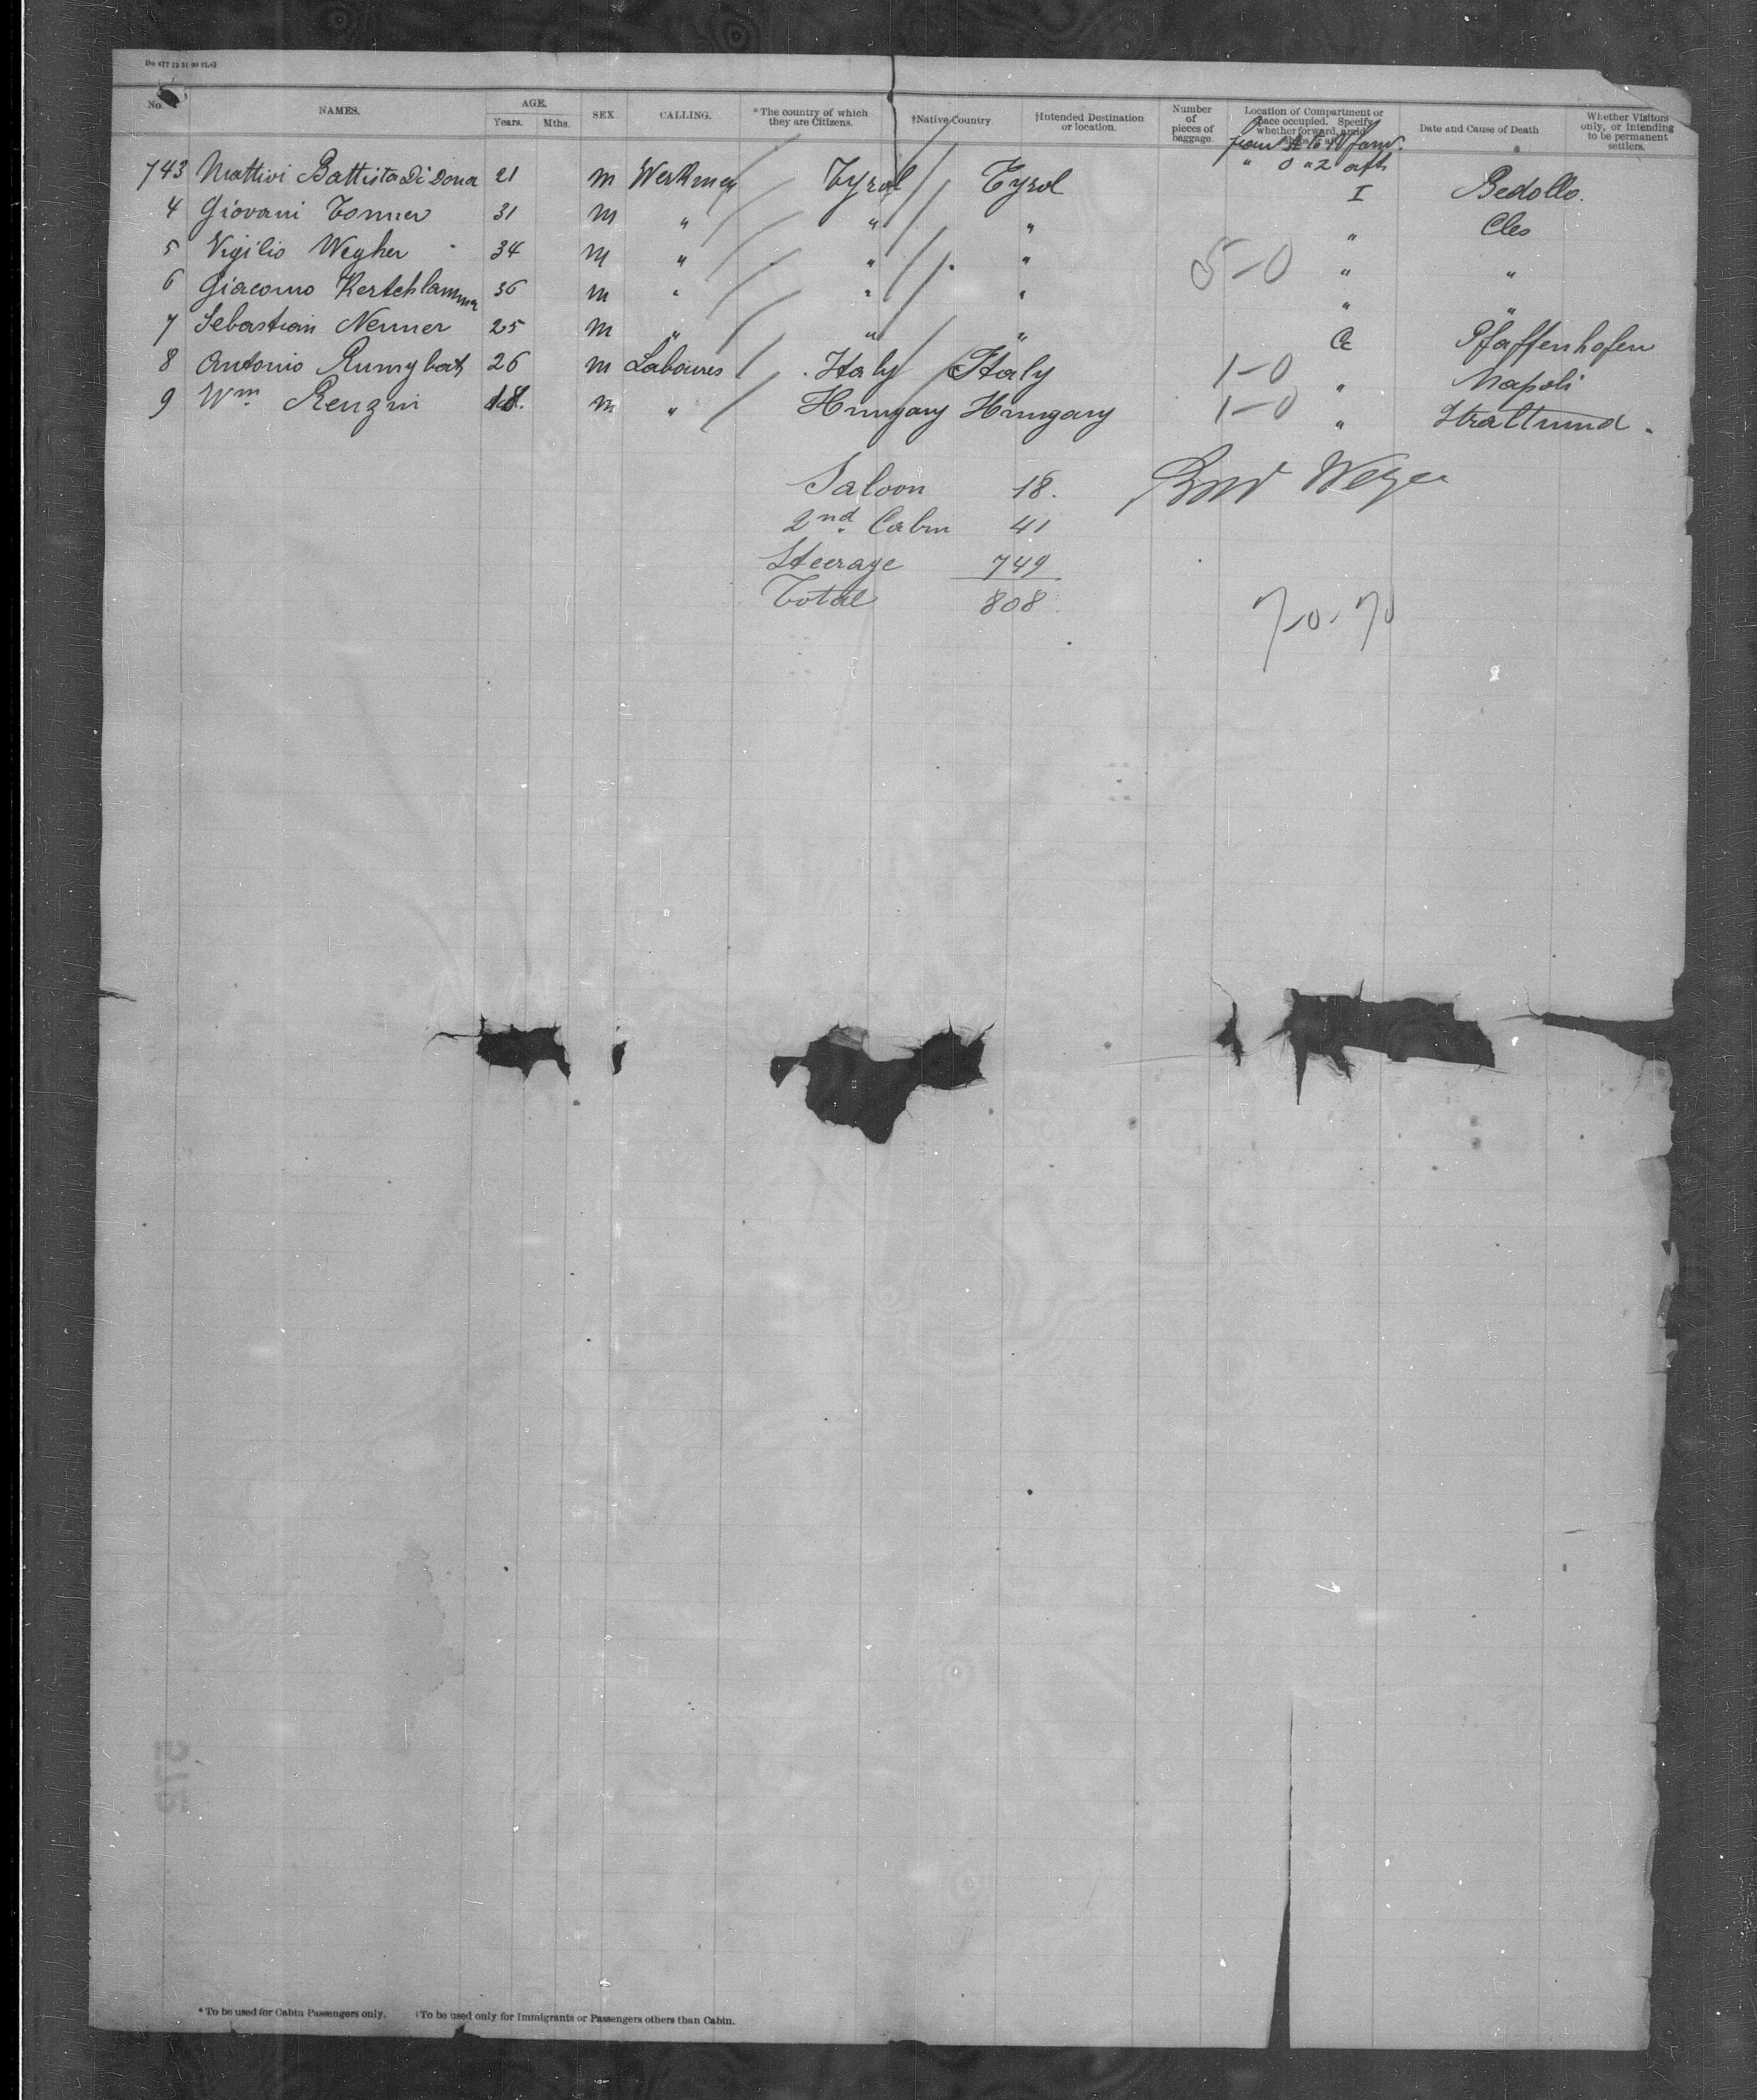 No. NAMES. AGE. Years. Mths. SEX CALLING. *The country of which they are Citizens. †Native Country †Intended Destination or location. Number of pieces of baggage Location of Compartment or space occupied. Specify whether forward, amid Date and Cause of Death Whether Visitors only, or intending to be permanent settlers.
" 0 " 2 aft
743 Mattivi Battista Di Dona 21 m Workmen Tyrol Tyrol I Bedollo.
4 Giovani Tonner 31 m " " " " Cles
5 Vigilio Wegher 34 m " " " 5-0 " "
6 Giacomo 36 m " " " " "
7 Sebastian Nenner 25 m " " " Pfaffenhofen
8 Antonio 26 m Labourers Italy Italy 1-0 " Napoli
9 Wm Renzni 18. m " Hungary Hungary 1-0 "
Saloon 18.
2nd Cabin 41
Steerage 749
Total 808
7-0-70
*To be used for Cabin Passengers only. †To be used only for Immigrants or Passengers others than Cabin.